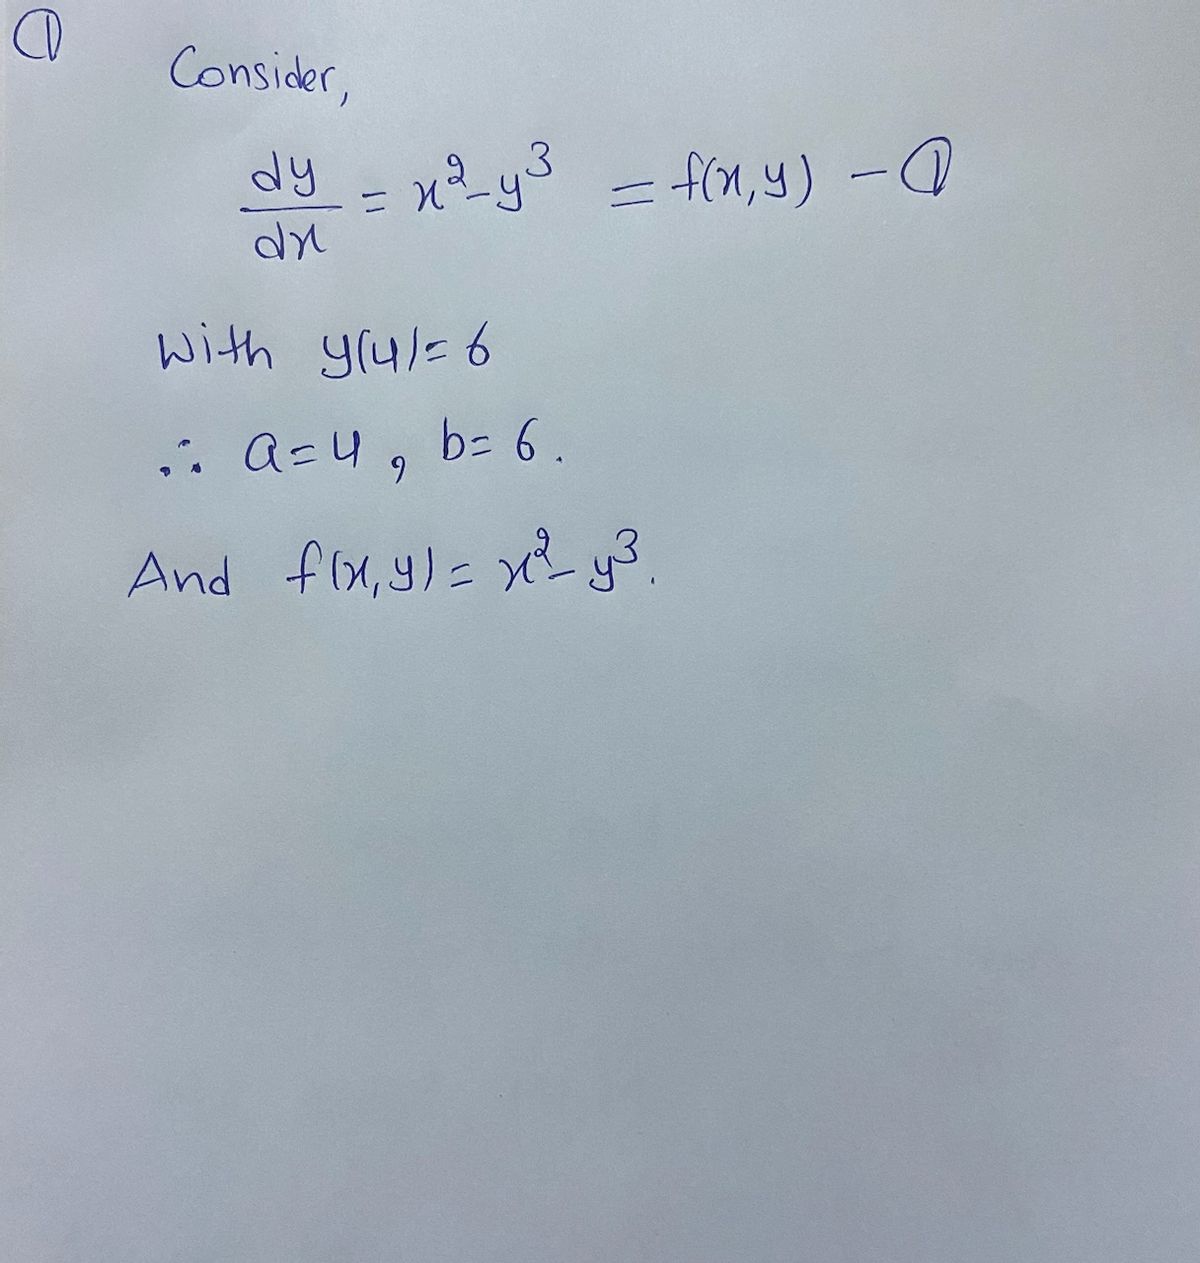 ①
Consider,
dy/dx = x²-y³ = f(x,y) - ①
With y(4)= 6
∴ a=4, b= 6.
And f(x,y)= x²-y³.